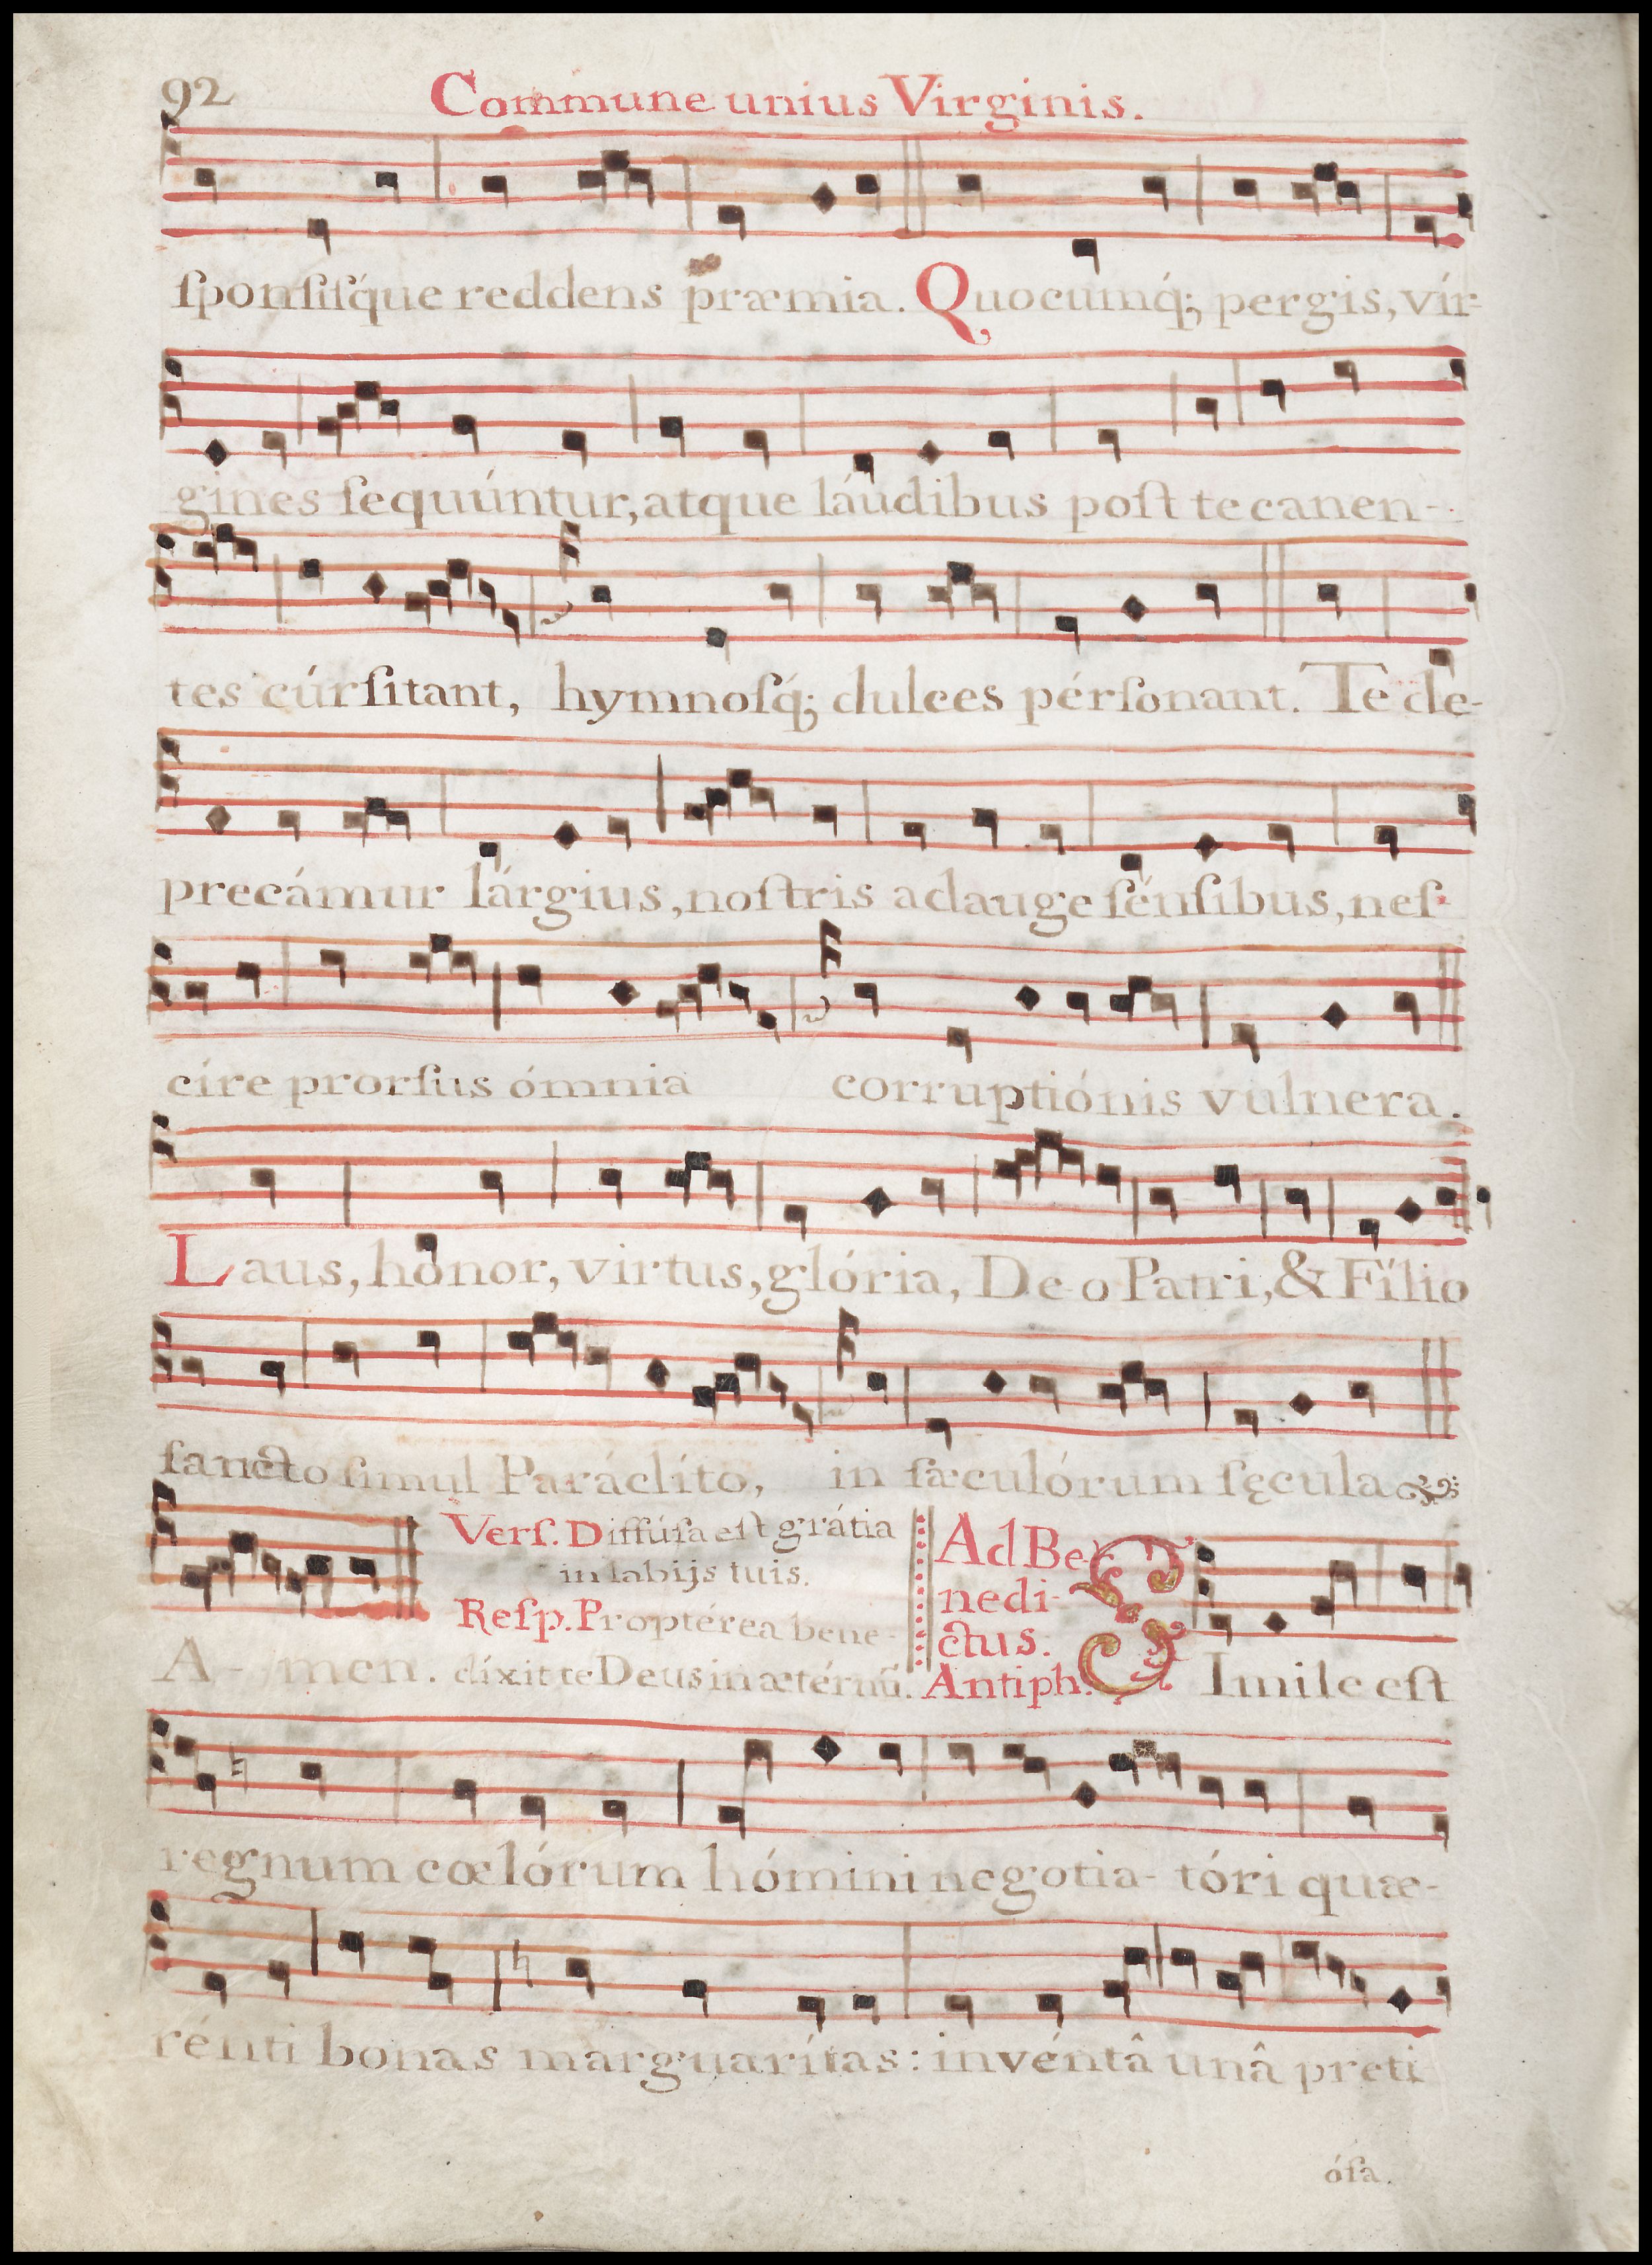 92
Commune unius Virginis.
ſponſiſq́ue reddens præmia. Quocumq́; pergis, vír-
gines ſequúntur, atque láudibus poſt te canen-
tes cúrſitant, hymnoſq́; dulces pérſonant. Te de-
precámur lárgius, noſtris adauge ſénſibus, neſ-
círe prorſus ómnia corruptiónis vulnera.
Laus, honor, virtus, glória, Deo Patri, & Fílio
ſancto ſimul Paráclíto, in ſæculórum ſęcula
Verſ. Diffúſa eſt grátia
in labijs tuis.
Reſp. Proptérea bene-
A- men. díxit te Deus in ætérnũ.
Ad Be-
nedi-
ctus.
Antiph. SImile eſt
regnum cœlórum hómini negotia- tóri quæ-
rénti bonas marguarítas: invéntâ unâ preti
óſa.